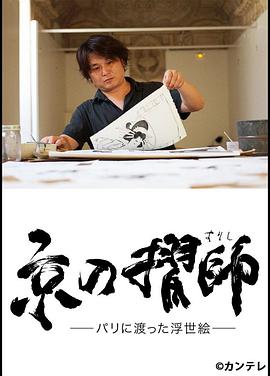 京の摺師
すりし
──パリに渡った浮世絵──
©カンテレ